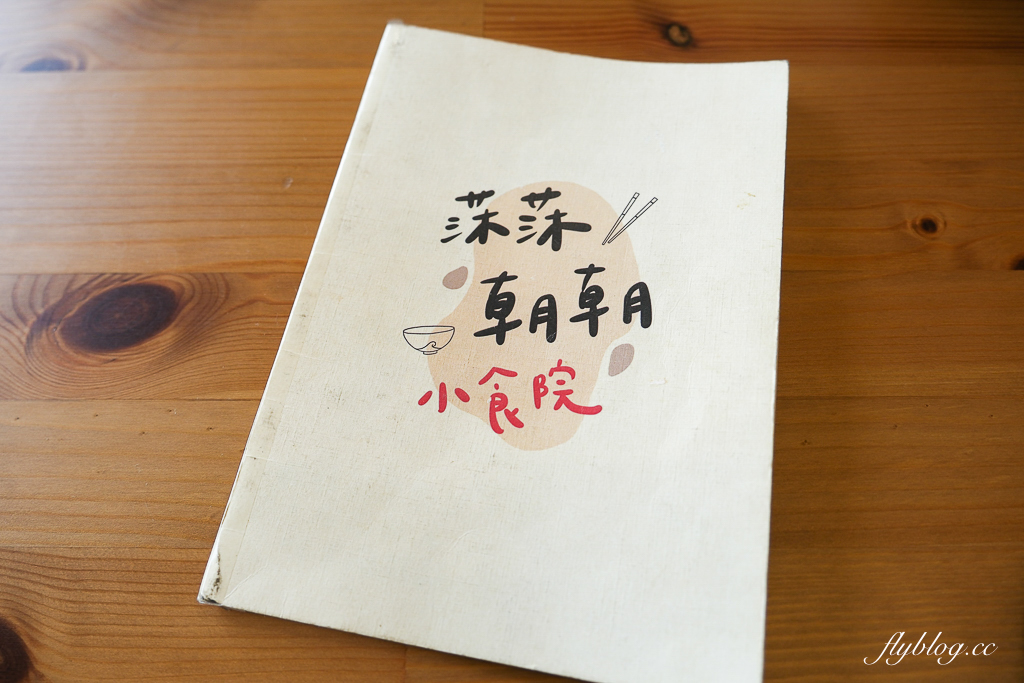 莯莯
朝朝
小食院
flyblog.cc